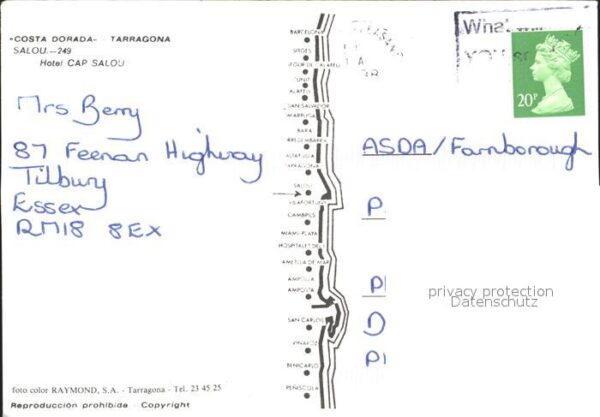 «COSTA DORADA» - TARRAGONA
SALOU.—249
Hotel CAP SALOU
Mrs Berry
87 Feenan Highway
Tilbury
Essex
RM18 8EX
foto color RAYMOND, S.A. - Tarragona - Tel. 23 45 25
Reproducción prohibida - Copyright
BARCELONA
SITGES
CUNIT
SAN SALVADOR
BARA
TARRAGONA
SALOU
VILAFORTUNY
CAMBRILS
MIAMI-PLAYA
AMETLLA DE MAR
AMPOLLA
AMPOSTA
SAN CARLOS
VINAROZ
BENICARLO
PEÑISCOLA
20P
ASDA/Farnborough
P
P
D
P
privacy protection
Datenschutz